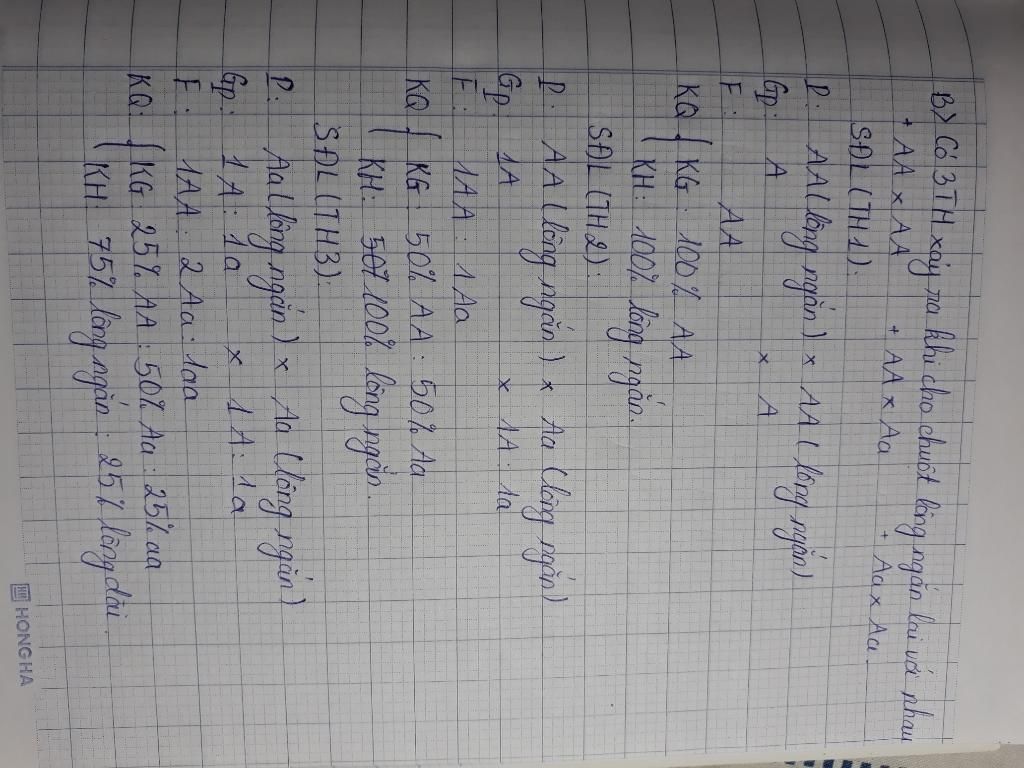 B> Có 3TH xảy ra khi cho chuột lông ngắn lai với nhau
+ AA x AA + AA x Aa + Aa x Aa.
SĐL (TH1):
P: AA (lông ngắn) x AA (lông ngắn)
Gp: A x A
F: AA
KQ { KG: 100% AA
KH: 100% lông ngắn.
SĐL (TH2):
P: AA (lông ngắn) x Aa (lông ngắn)
Gp: 1A x 1A : 1a
F: 1AA : 1Aa
KQ { KG: 50% AA : 50% Aa
KH: 50% 100% lông ngắn.
SĐL (TH3):
P: Aa (lông ngắn) x Aa (lông ngắn)
Gp: 1A : 1a x 1A : 1a
F: 1AA : 2Aa : 1aa
KQ: { KG: 25% AA : 50% Aa : 25% aa
KH: 75% lông ngắn : 25% lông dài.
HONG HA